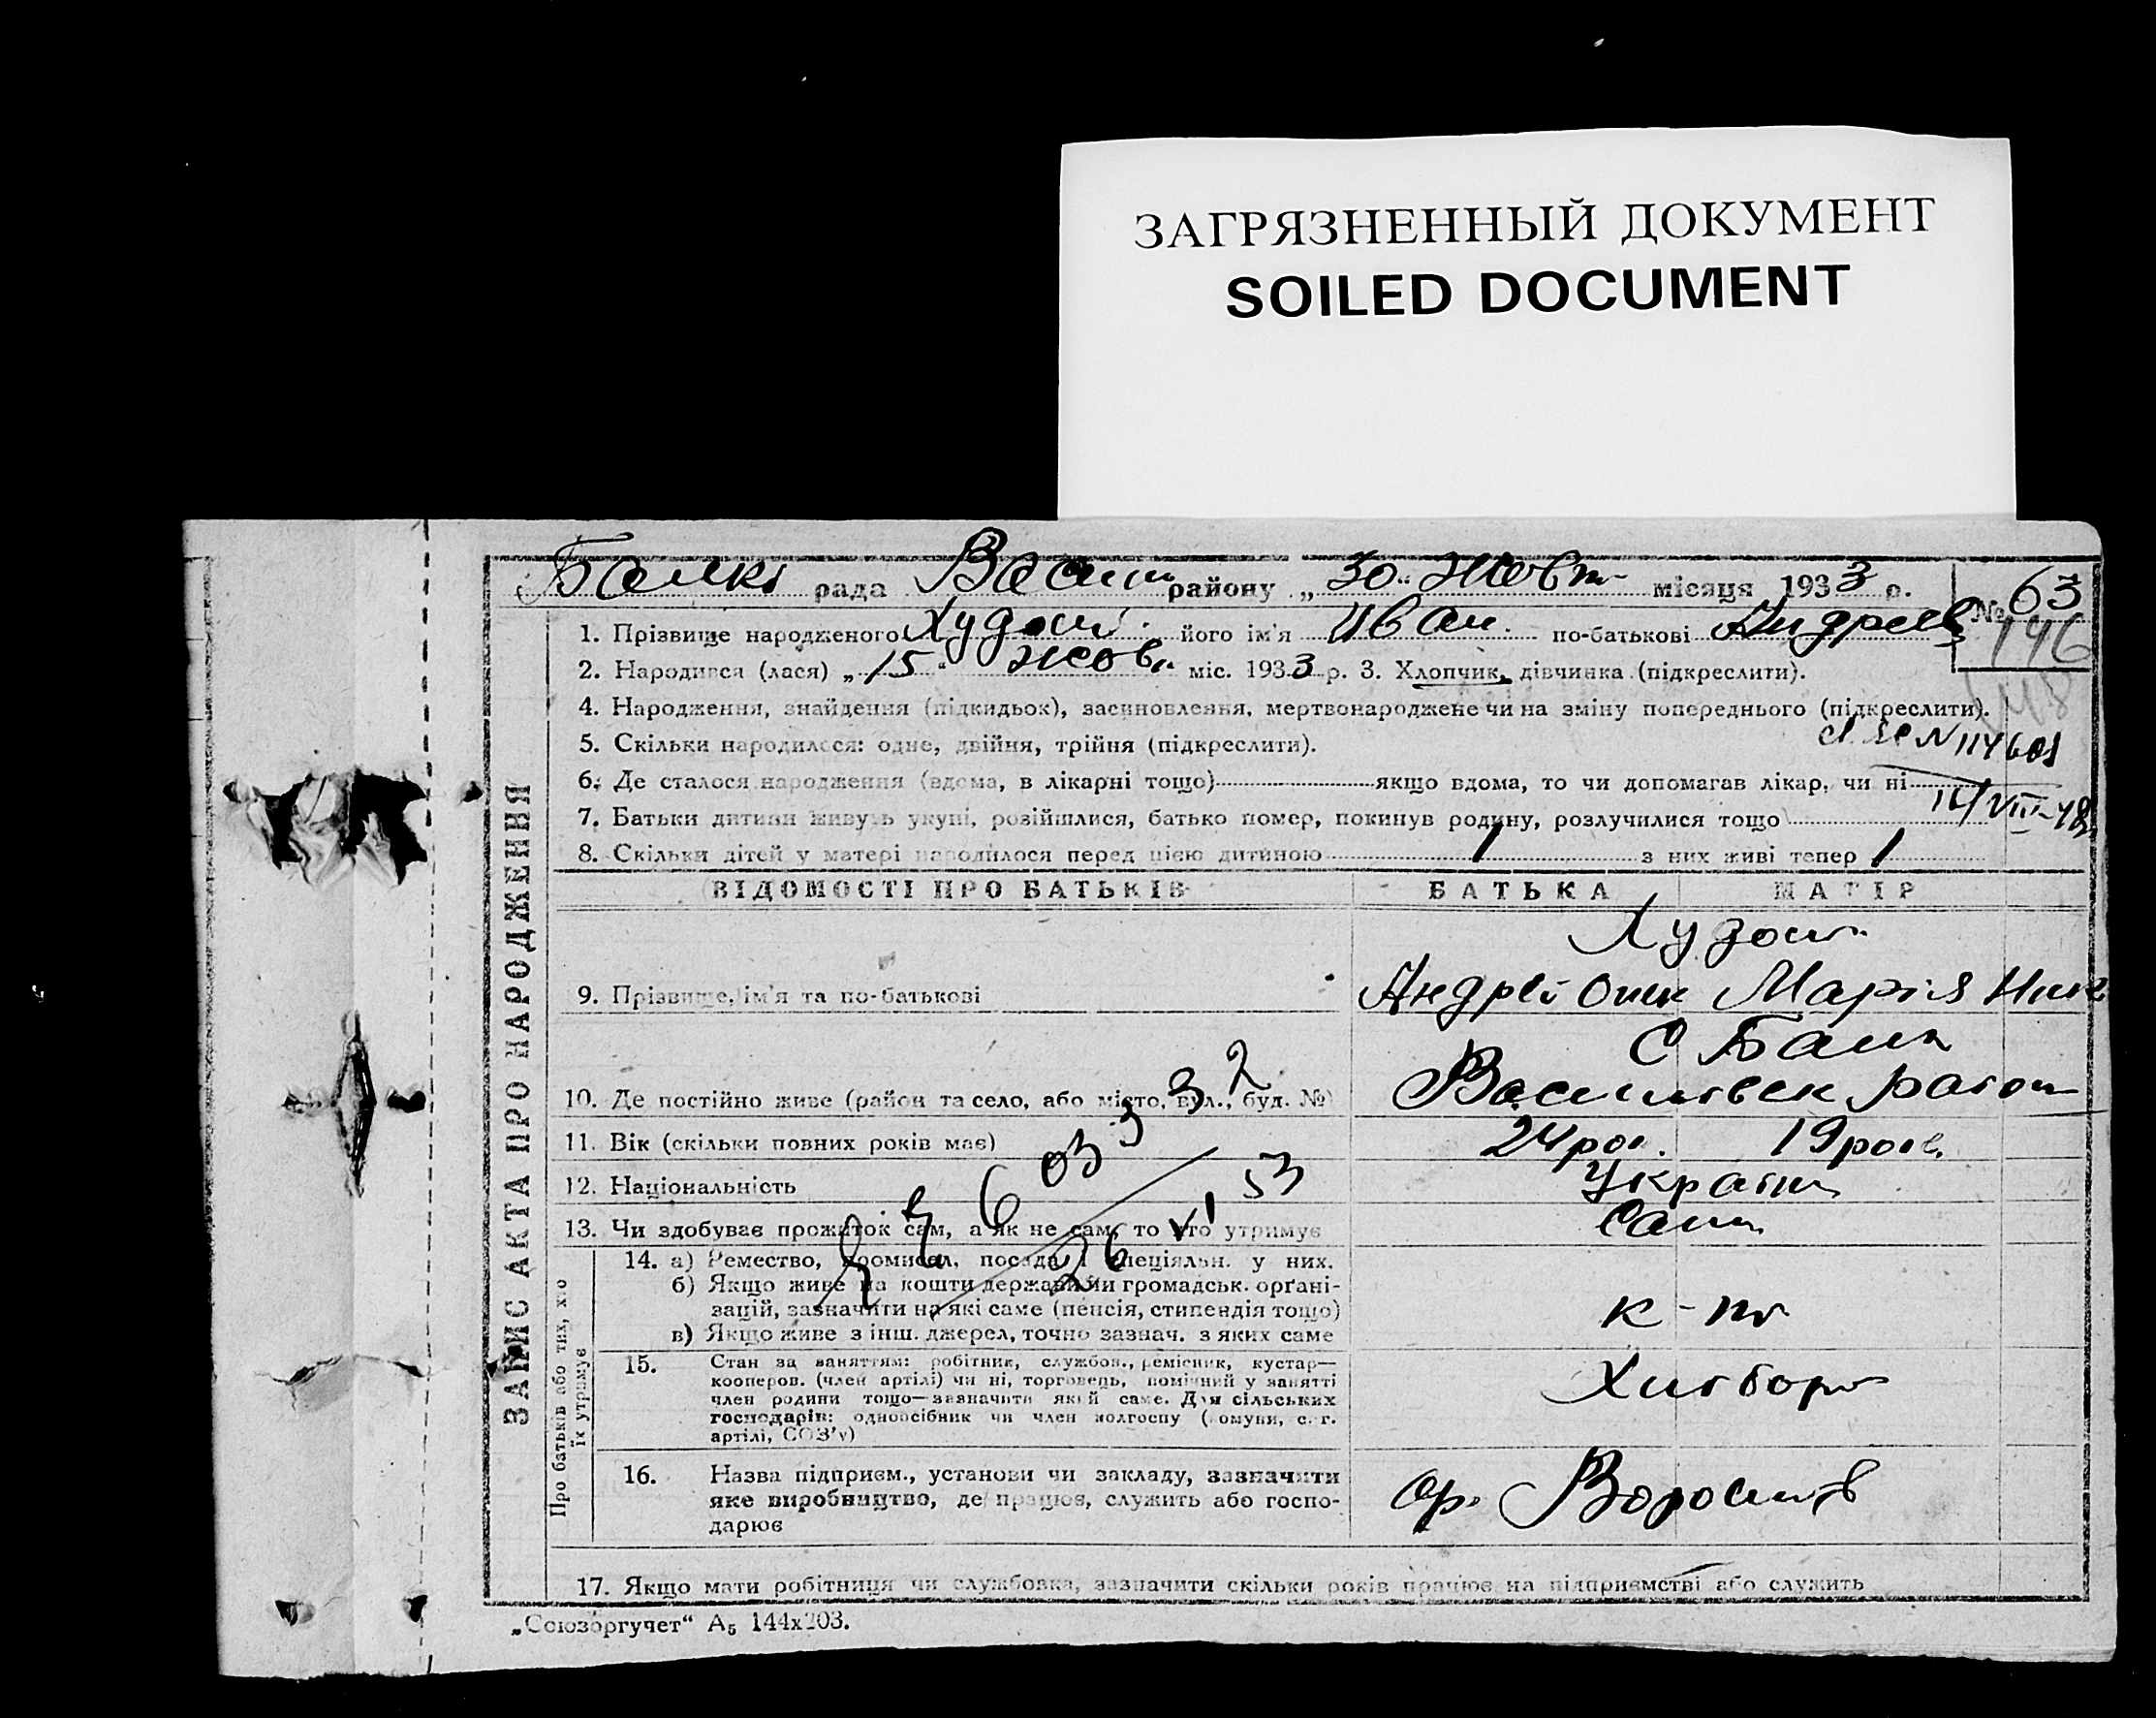 ЗАГРЯЗНЕННЫЙ ДОКУМЕНТ
SOILED DOCUMENT
рада Васил району „30" Жовт місяця 1933 р.
№ 63
146
1. Прізвище народженого його ім'я Иван по-батькові Андреев
2. Народився (лася) „15" жовт міс. 1933 р. 3. Хлопчик, дівчинка (підкреслити).
4. Народження, знайдення (підкидьок), засиновлення, мертвонароджене чи на зміну попереднього (підкреслити).
5. Скільки народилося: одне, двійня, трійня (підкреслити).
N 114601
6. Де сталося народження (вдома, в лікарні тощо) якщо вдома, то чи допомагав лікар, чи ні
14/VIII-48
7. Батьки дитини живуть укупі, розійшлися, батько помер, покинув родину, розлучилися тощо
8. Скільки дітей у матері народилося перед цією дитиною 1 з них живі тепер 1
ЗАПИС АКТА ПРО НАРОДЖЕННЯ
ВІДОМОСТІ ПРО БАТЬКІВ БАТЬКА МАТІР
9. Прізвище, ім'я та по-батькові
Андрей Марія
10. Де постійно живе (район та село, або місто, вул., буд. №)
11. Вік (скільки повних років має) 24 рок. 19 років
12. Національність Україн
13. Чи здобуває прожиток сам, а як не сам, то хто утримує Сам
Про батьків або тих, хто їх утримує
14. а) Ремество, промисел, посада і спеціяльн. у них.
б) Якщо живе на кошти держави чи громадськ. орґані-
зацій, зазначити на які саме (пенсія, стипендія тощо)
в) Якщо живе з інш. джерел, точно зазнач. з яких саме
15. Стан за заняттям: робітник, службов., ремісник, кустар—
кооперов. (член артілі) чи ні, торговець, помічний у занятті
член родини тощо—зазначити який саме. Для сільських
господарів: одноосібник чи член колгоспу (комуни, с. г.
артілі, СОЗ'у)
Хлібороб
16. Назва підприєм., установи чи закладу, зазначити
яке виробництво, де працює, служить або госпо-
дарює
17. Якщо мати робітниця чи службовка, зазначити скільки років працює на підприємстві або служить
„Союзоргучет" А5 144х203.